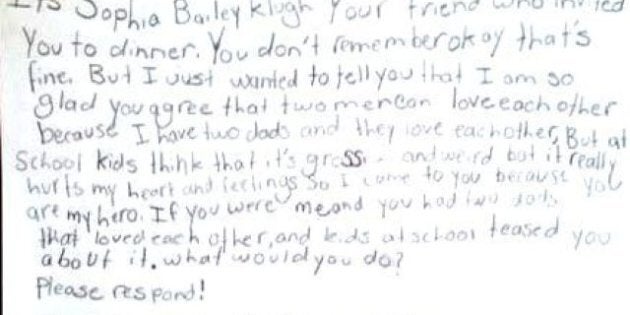 It's Sophia Bailey Klugh Your friend who invited
You to dinner. You don't remember okay that's
fine. But I just wanted to tell you that I am so
glad you agree that two men can love each other
because I have two dads and they love each other, But at
School kids think that it's gross and weird but it really
hurts my heart and feelings So I come to you because you
are my hero. If you were me and you had two dads
that loved each other, and kids at school teased you
about it. what would you do?
Please respond!